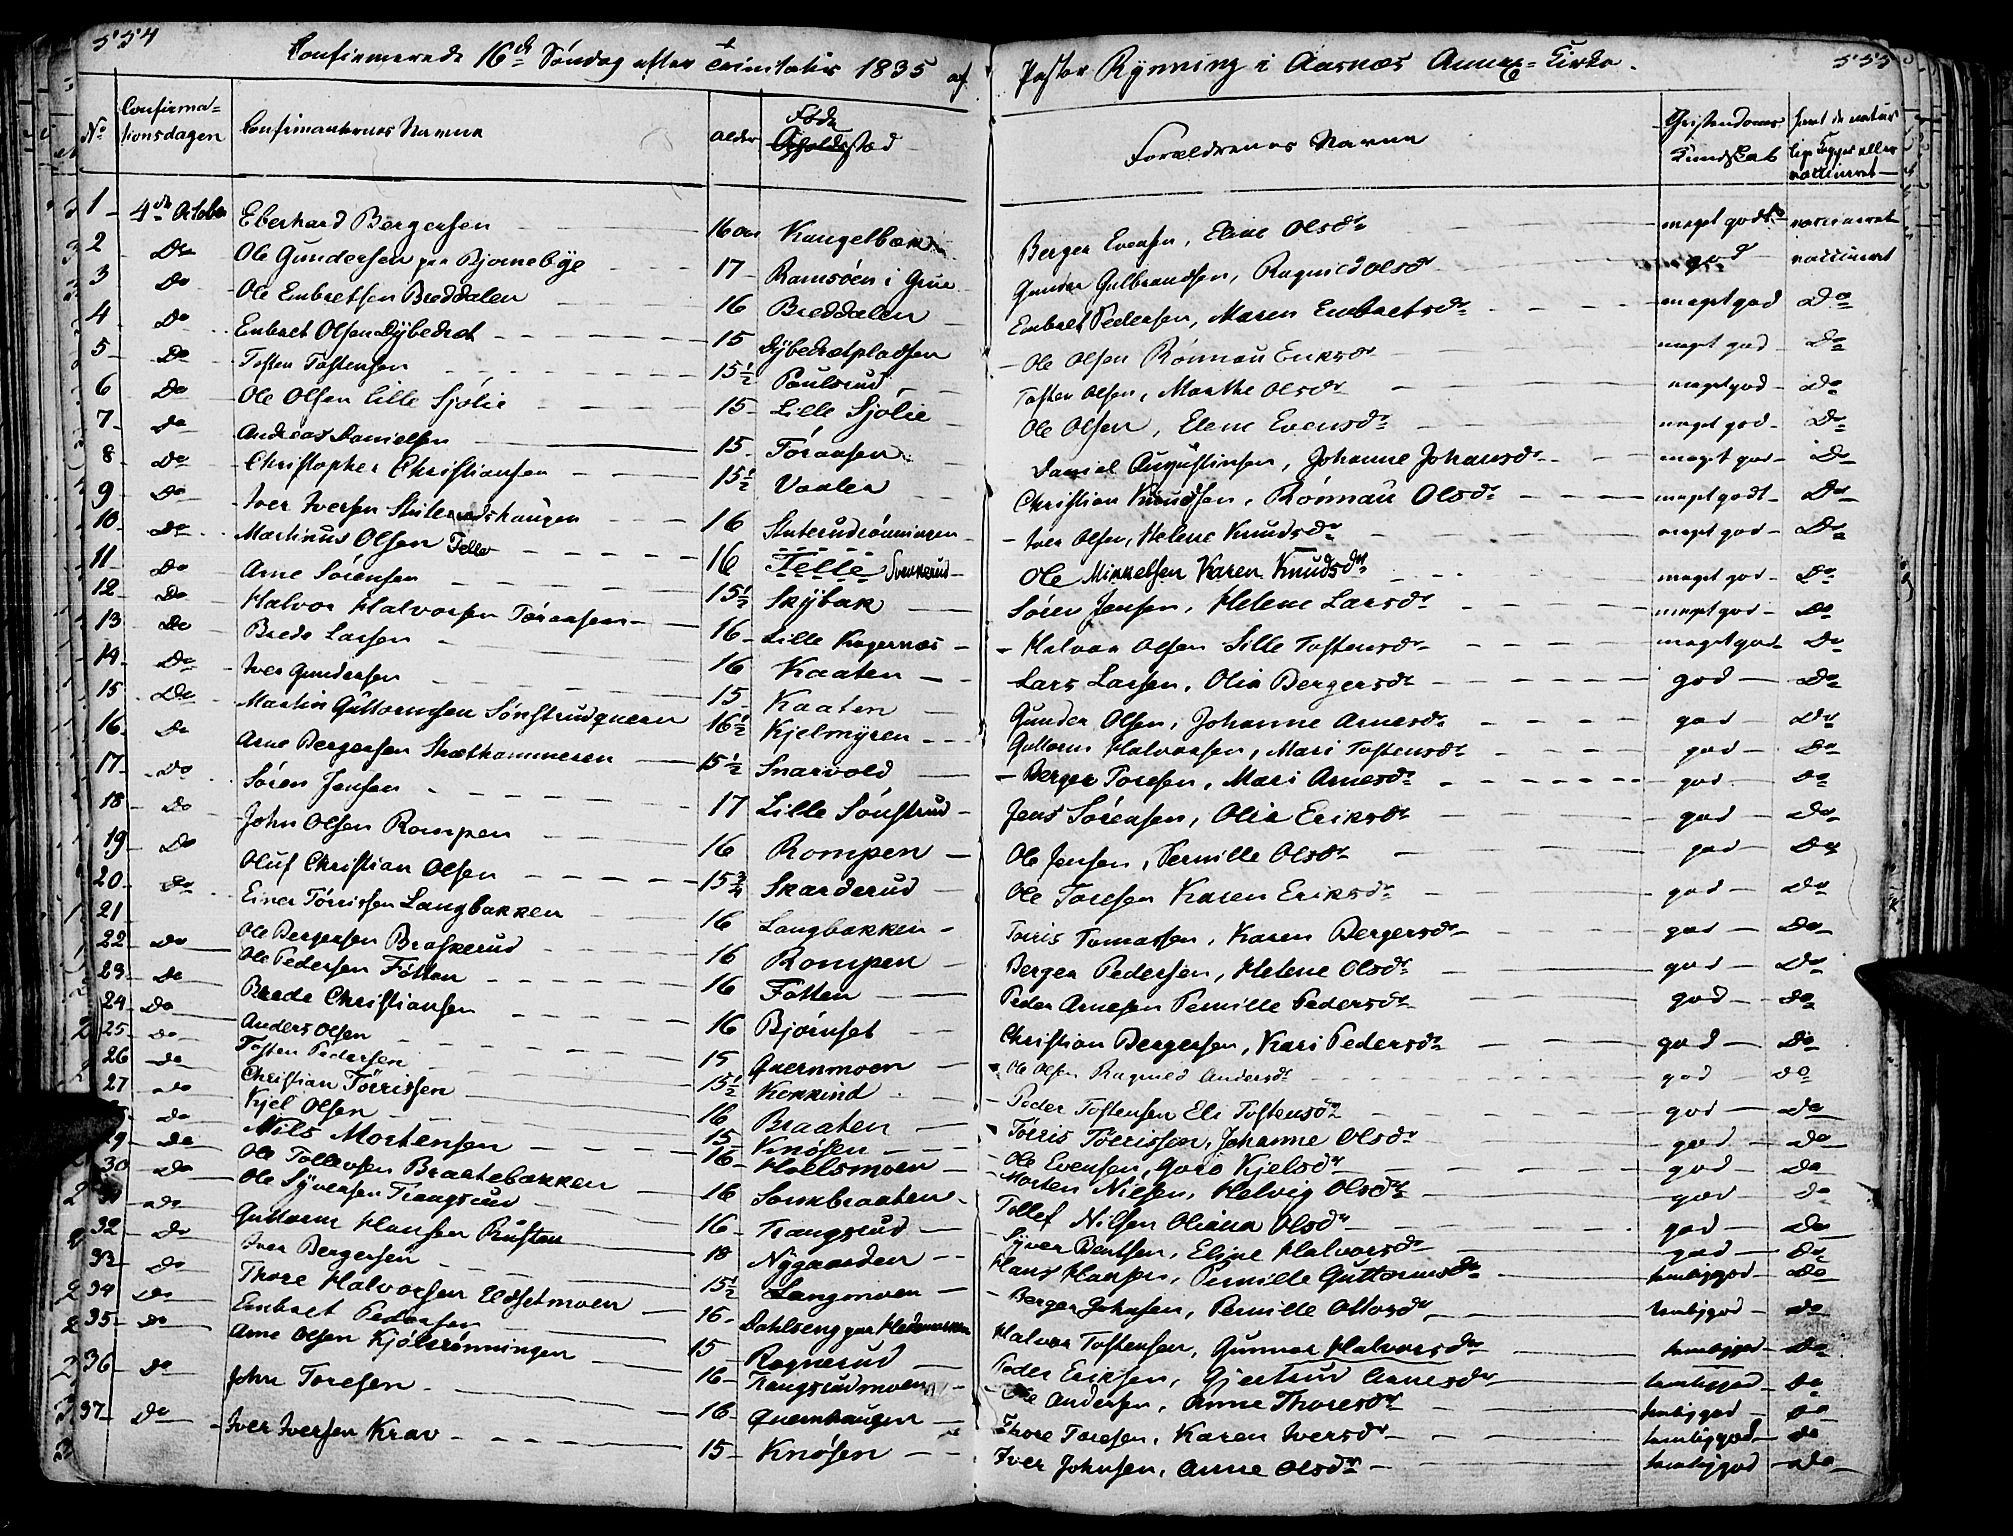 554
555
Confirmerede 16de Søndag efter Trinitatis 1835 af Pastor Rynning i Aasnæs Annex-Kirke.
No Confirmationsdagen Confirmanternes Navne alder Føde Opholdssted Forældrenes Navne Christendoms Kundskab havt de naturlige Kopper eller vaccineret
1 4de October Eberhard Bergersen 16 Aar Kangelbæk Berger Evensen, Eline Olsdr meget godt vaccineret
2 Do Ole Gundersen paa Bjørnebye 17 Ramsöen i Grue Gunder Gulbrandsen, Ragnild Olsdr god vaccineret
3 Do Ole Embretsen Breddalen 16 Breddalen Embret Pedersen, Maren Embretsdr meget god Do
4 Do Embret Olsen Dybedræt 15 Dybedrætpladsen Ole Olsen Rönnau Eriksdr meget god Do
5 Do Tosten Tostensen 15½ Paulsrud Tosten Olsen, Marthe Olsdr meget god Do
6 Do Ole Olsen Lille Sjølie 15 Lille Sjølie Ole Olsen, Elene Evensdr meget god Do
7 Do Andreas Danielsen 15 Töraasen Daniel Augustinsen, Johanne Johansdr meget god Do
8 Do Christopher Christiansen 15½ Vaaler Christian Knudsen, Rönnau Olsdr meget godt Do
9 Do Iver Iversen Sluterudshaugen 16 Sluterudrönningen Iver Olsen, Helene Knudsdr meget god Do
10 Do Martinus Olsen Telle 16 Telle Svenkerud Ole Mikkelsen Karen Knudsdr meget god Do
11 Do Arne Sörensen 15½ Skybak Sören Jensen, Helene Larsdr meget god Do
12 Do Halvor Halvorsen Töraasen 16 Lille Kagernæs Halvor Olsen Sille Tostensdr meget god Do
13 Do Brede Larsen 16 Kaaten Lars Larsen, Olia Bergersdr god Do
14 Do Iver Gundersen 15 Kaaten Gunder Olsen, Johanne Arnesdr god Do
15 Do Martin Guttormsen Sönstrudquern 16½ Kjelmyren Guttorm Halvorsen, Mari Tostensdr god Do
16 Do Arne Bergersen Skrethammeren 15½ Snarvold Berger Toresen, Mari Arnesdr god Do
17 Do Sören Jensen 17 Lille Sönstrud Jens Sörensen, Olia Eriksdr god Do
18 Do John Olsen Rompen 16 Rompen Ole Jensen, Pernille Olsdr god Do
19 Do Oluf Christian Olsen 15¾ Skarderud Ole Toresen Karen Eriksdr god Do
20 Do Einer Törrissen Langbakken 16 Langbakken Törris Tomassen, Karen Bergersdr god Do
21 Ole Bergersen Braskerud 16 Rompen Berger Pedersen, Helene Olsdr god Do
22 Do Ole Pedersen Fötten 16 Fötten Peder Arnesen Pernille Pedersdr god Do
23 Do Brede Christiansen 16 Bjørnset Christian Bergersen, Kari Pedersdr god Do
24 Do Anders Olsen 15 Quernmoen Ole Olsen Ragnild Andersdr god Do
25 Do Tosten Pedersen 15½ Kokkind Peder Tostensen Eli Tostensdr god Do
26 Do Christian Törrissen 16 Braaten Törris Törrissen, Johanne Olsdr god Do
27 Do Kjel Olsen 15 Knösen Ole Evensen, Goro Kjelsdr god Do
Do Nils Mortensen 16 Holtsmoen Morten Nilsen, Helvig Olsdr god Do
29 Do Ole Tollevsen Braatebakken 16 Sorkbraaten Tollef Nilsen Oliana Olsdr god Do
30 Do Ole Syversen Trangsrud 16 Trangsrud Syver Bentsen, Eline Halvorsdr god Do
31 Do Guttorm Hansen Rusten 18 Nygaarden Hans Hansen, Pernille Guttormsdr temlig god Do
32 Do Iver Bergersen 15½ Langmoen Berger Johnsen, Pernille Ottosdr temlig god Do
33 Do Thore Halvorsen Udsetmoen 16 Dahlseng paa Hedemarken Halvor Tostensen, Gunnor Halvorsdr temlig god Do
34 Do Embret Pedersen 15 Rognerud Peder Eriksen, Gjertrud Arnesdr temlig god Do
35 Do Arne Olsen Kjölsrönningen 16 Trangsrudmoen Ole Andersen, Anne Thoresdr temlig god Do
36 Do John Toresen 16 Quernhaugen Thore Toresen, Karen Iversdr temlig god Do
37 Do Iver Iversen Krav 15 Knösen Iver Johnsen, Anne Olsdr temlig god Do